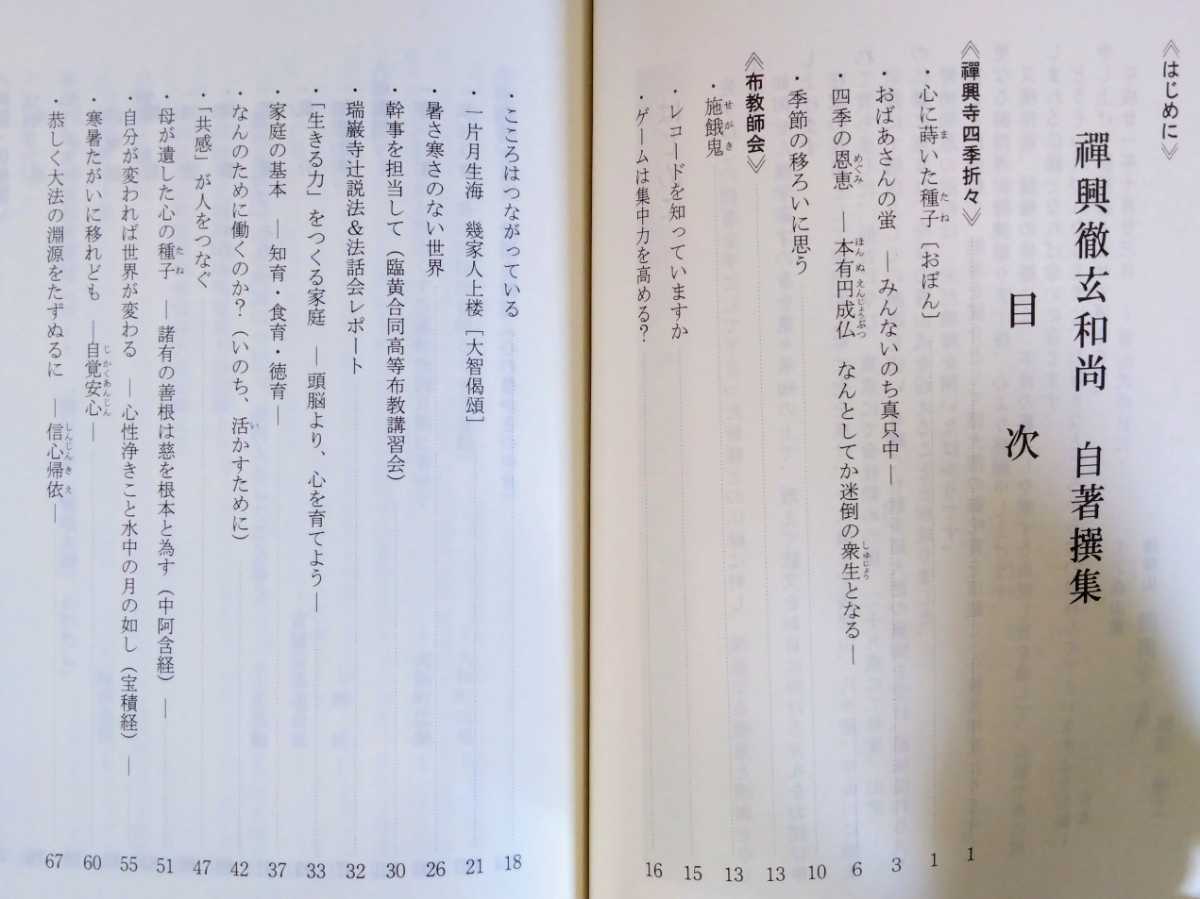 《はじめに》
禪興徹玄和尚　自著撰集
目次
《禪興寺四季折々》 1
・心に蒔いた種子〔おぼん〕 1
・おばあさんの蛍　―みんないのち真只中― 3
・四季の恩恵　―本有円成仏　なんとしてか迷倒の衆生となる― 6
・季節の移ろいに思う 10
《布教師会》 13
・施餓鬼 13
・レコードを知っていますか 15
・ゲームは集中力を高める？ 16
・こころはつながっている 18
・一片月生海　幾家人上楼［大智偈頌］ 21
・暑さ寒さのない世界 26
・幹事を担当して（臨黄合同高等布教講習会） 30
・瑞巌寺辻説法＆法話会レポート 32
・「生きる力」をつくる家庭　―頭脳より、心を育てよう― 33
・家庭の基本　―知育・食育・徳育― 37
・なんのために働くのか？（いのち、活かすために） 42
・「共感」が人をつなぐ 47
・母が遺した心の種子　―諸有の善根は慈を根本と為す（中阿含経）― 51
・自分が変われば世界が変わる　―心性浄きこと水中の月の如し（宝積経）― 55
・寒暑たがいに移れども　―自覚安心― 60
・恭しく大法の淵源をたずぬるに　―信心帰依― 67